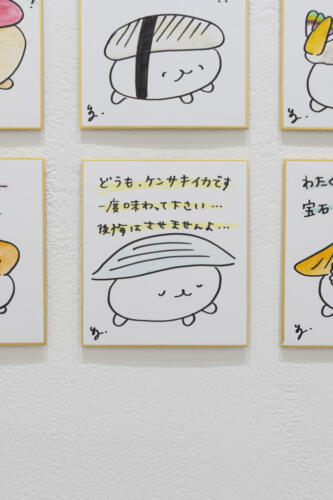 どうも、ケンサキイカです
一度味わって下さい…
後悔はさせませんよ…
わたく
宝石